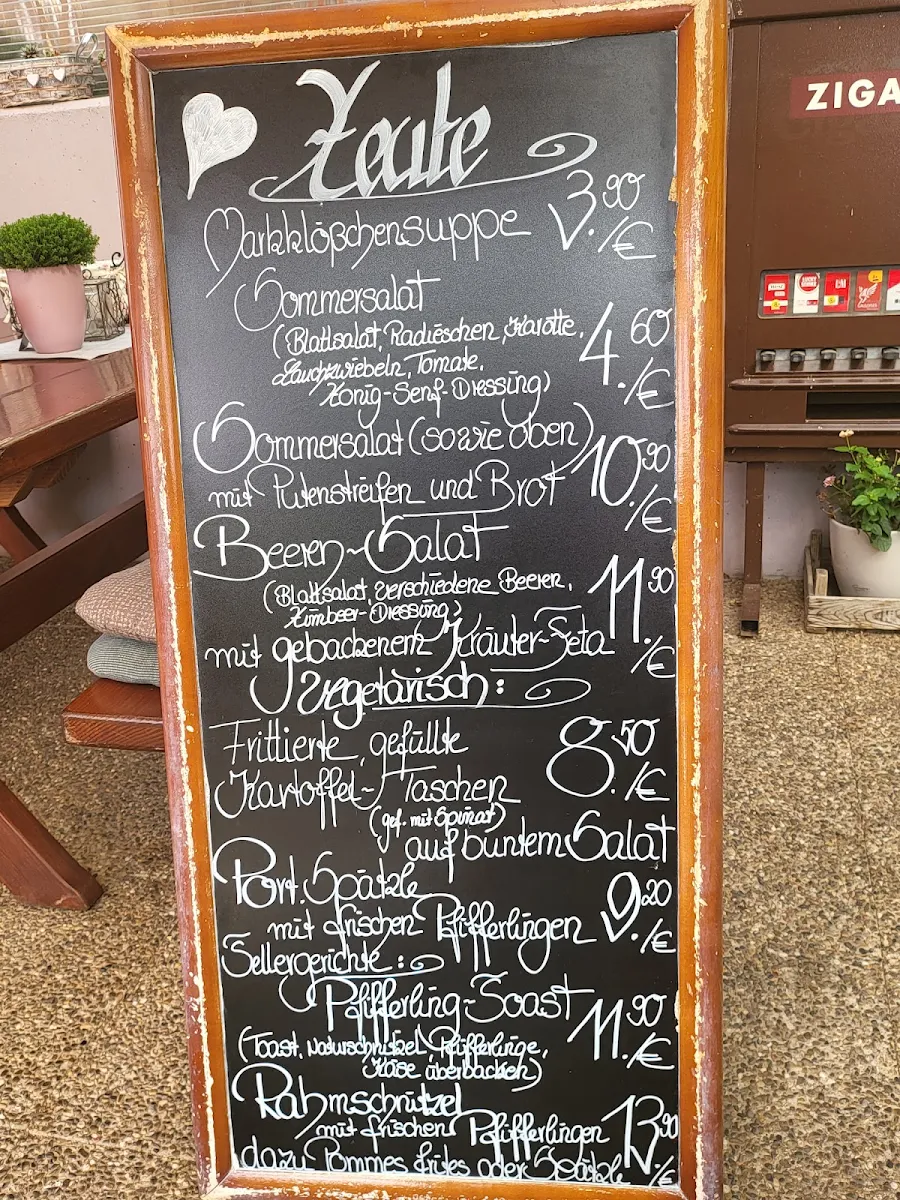 Heute
Markklößchensuppe 3.90/€
Sommersalat
(Blattsalat, Radieschen, Karotte,
Lauchzwiebeln, Tomate,
Honig-Senf-Dressing) 4.60/€
Sommersalat (so wie oben)
mit Putenstreifen und Brot 10.90/€
Beeren-Salat
(Blattsalat, verschiedene Beeren,
Himbeer-Dressing)
mit gebackenem Kräuter-Feta 11.90/€
Vegetarisch:
Frittierte, gefüllte
Kartoffel-Taschen 8.50/€
(gef. mit Spinat)
auf buntem Salat
Port. Spätzle
mit frischen Pfifferlingen 9.20/€
Tellergerichte:
Pfifferling-Toast 11.90/€
(Toast, Naturschnitzel, Pfifferlinge,
Käse überbacken)
Rahmschnitzel
mit frischen Pfifferlingen 13.90/€
dazu Pommes frites oder Spätzle
ZIGA